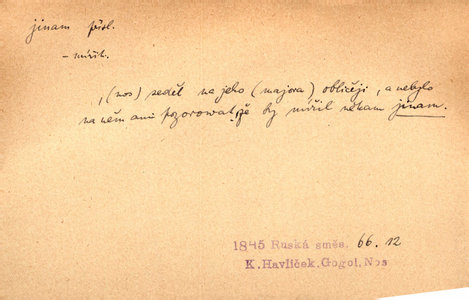 jinam přísl.
– mířit.
, (nos) seděl na jeho (majora) obličeji, a nebylo
na něm ani pozorovat, že by mířil někam jinam.
1845 Ruská směs. 66.12
K. Havlíček. Gogol, Nos